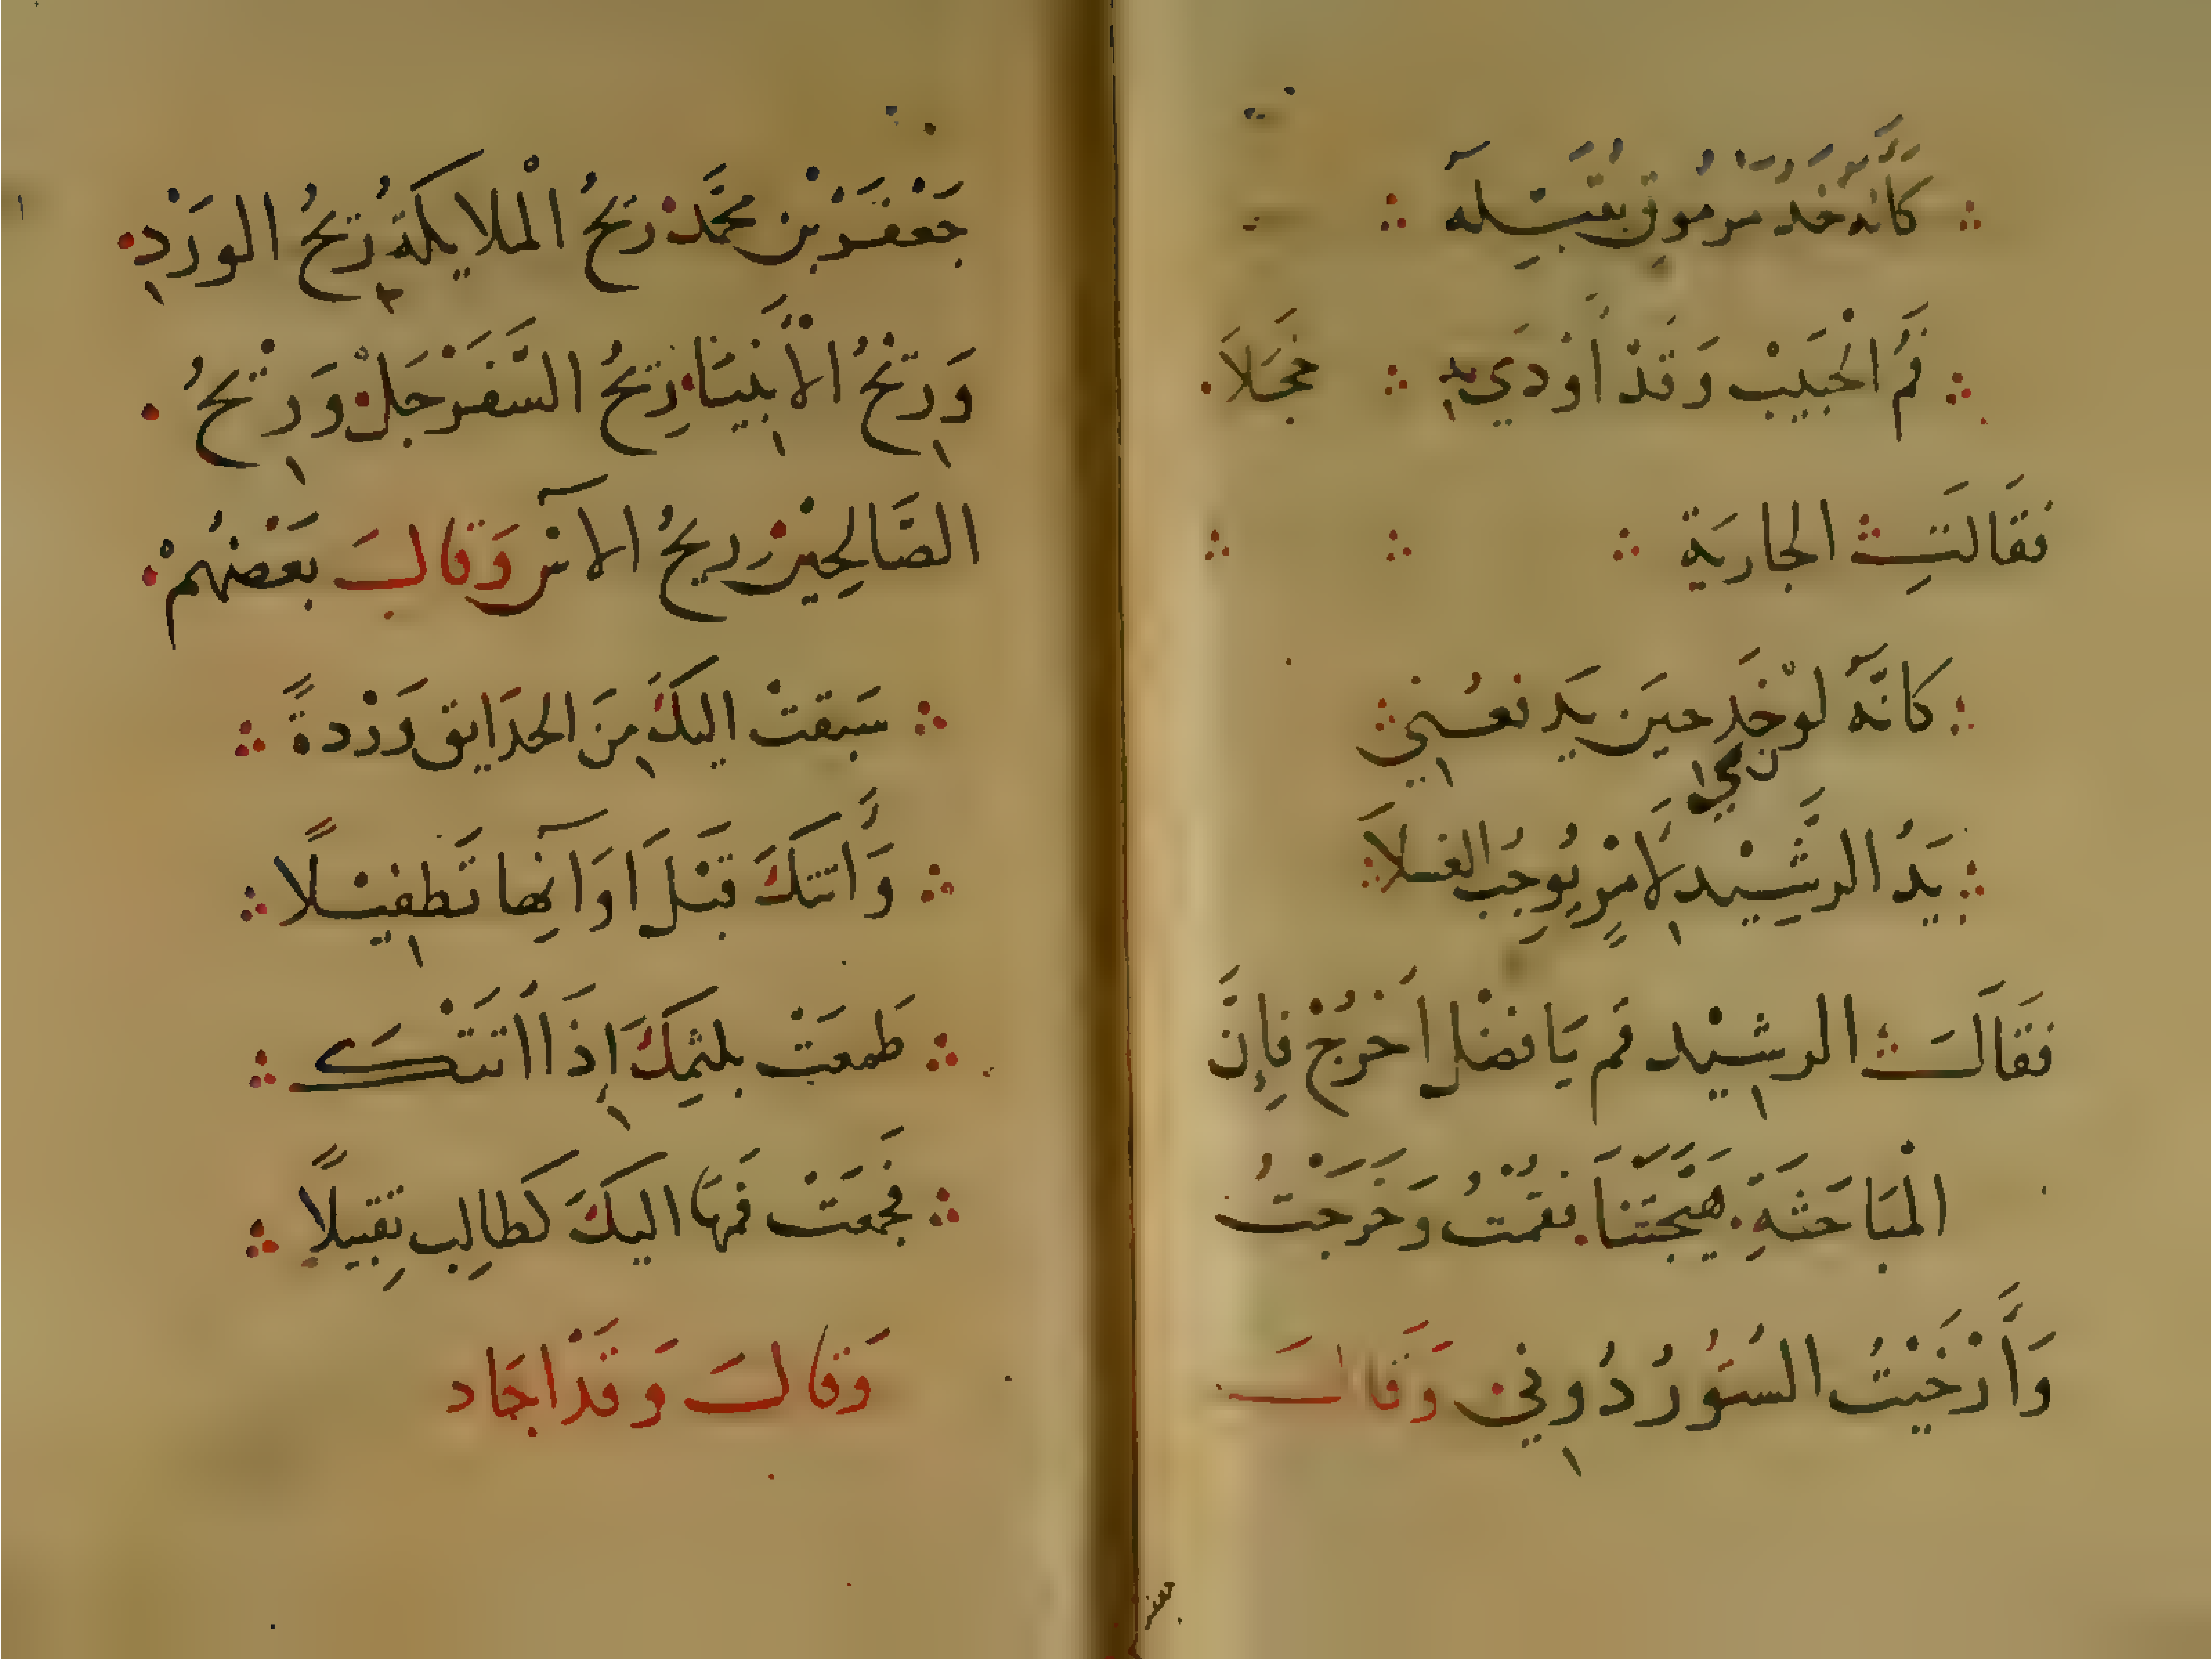 كَأَنَّهُ خَدُّ مَرْمُوقٍ يُقَبِّلُهُ
فَمُ الْحَبِيبِ وَقَدْ أَوْدَى بِهِ خَجَلَا
فَقَالَتِ الجارِيَة
كَانَّهُ لَوْنُ خَدِي حينَ يَدفعُني
يَدُ الرَّشِيْدِ لِأَمْرٍ يُوجِبُ الغسلاَ
فَقَالَ الرشيْد قم يَا فضْل أَخْرُجْ فَإِنَّ
الْمبَاحَثَةِ هَيَّجَتْنَا فَقُمْتُ وَخَرَجْتُ
وَأَرْخَيْتُ السُتُورُ دُوني وَقَالَ
جَعْفَرْ بْن محمَّد رِيحُ الْملايكَةُ رِيحُ الوَرْدِ
وَرِيْحُ الأَنبِيَا رِيحُ السَّفَرْجَلْ وَرِيْحُ
الصَّالِحِيْن ريحُ الآسْ وَقالَ بَعْضهُمْ
سَبقتْ اليكَ مِنَ الحدَايق وَرْدةً
وَأَتتكَ قبْلَ أَوَانِها تَطفيْلًا
طَمعَتْ بلثمِكَ إِذَا أَتَتْكَ
فجَمعَتْ فَمهَا اليكَ كطالِب تقبيلًا
وَقالَ وَقَدْ اجَاد